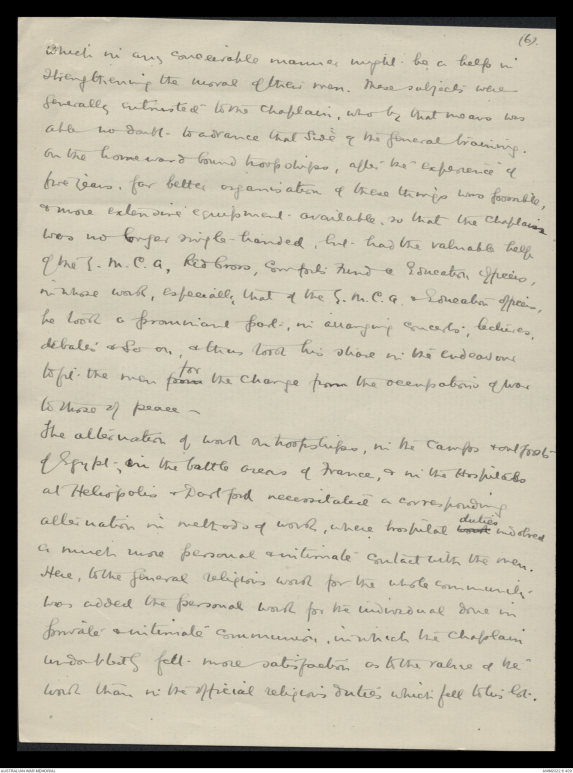 (6).
which in any conceivable manner might be a help in
strengthening the moral of their men. These subjects were
generally entrusted to the Chaplain, who by that means was
able no doubt to advance that side of the general training.
On the homeward bound troopships, after the experience of
five years, far better organisation of these things was possible,
& more extensive equipment available, so that the Chaplain
was no longer single-handed, but had the valuable help
of the Y.M.C.A., Red Cross, Comforts Fund & Education Officers,
in whose work, especially that of the Y.M.C.A. & Education officers,
he took a prominent part, in arranging concerts, lectures,
debates & so on, & thus took his share in the endeavour
to fit the men from for the change from the occupations of war
to those of peace –
The alternation of work on troopships, in the Camps & outposts
of Egypt, in the battle areas of France, & in the Hospitals
at Heliopolis & Dartford necessitated a corresponding
alternation in methods of work, where hospital work duties involved
a much more personal & intimate contact with the men.
Here, to the general religious work for the whole community
was added the personal work for the individual done in
private & intimate communion, in which the Chaplain
undoubtedly felt more satisfaction as to the value of the
work than in the official religious duties which fell to his lot.
AUSTRALIAN WAR MEMORIAL